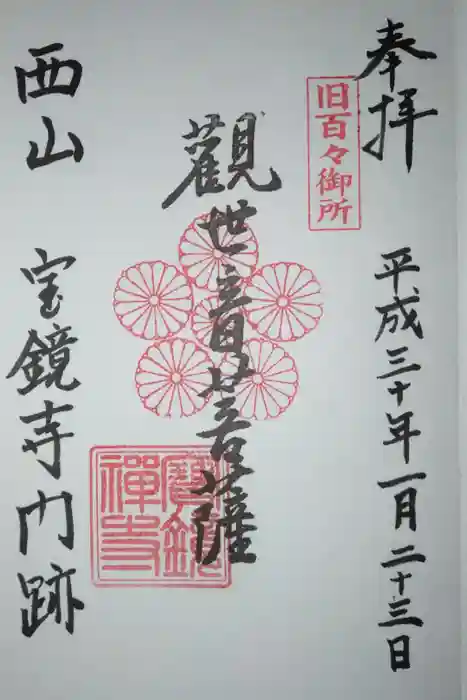 奉拝
平成三十年一月二十三日
旧百々御所
觀世音菩薩
寶鏡禪寺
西山
宝鏡寺門跡